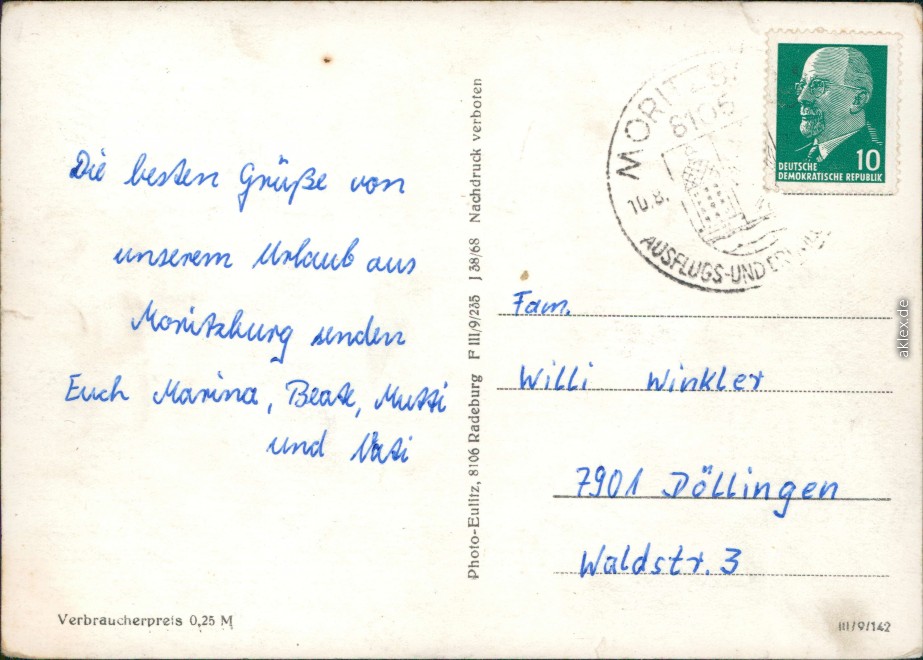 Die besten Grüße von
unserem Urlaub aus
Moritzburg senden
Euch Marina, Beate, Mutti
und Vati
Verbraucherpreis 0,25 M
Photo-Eulitz, 8106 Radeburg F III/9/235 J 38/68 Nachdruck verboten
8105
10.8.
AUSFLUGS-UND
10
DEUTSCHE
DEMOKRATISCHE REPUBLIK
Fam.
Willi Winkler
7901 Döllingen
Waldstr. 3
III/9/142
aklex.de